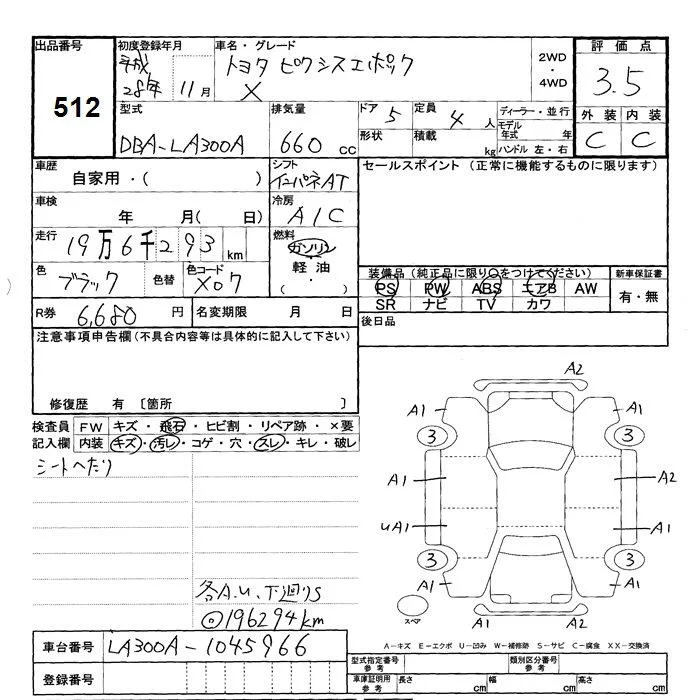 出品番号
512
初度登録年月
平成
28年 11月
車名・グレード
トヨタ ピクシスエポック
X
2WD
・
4WD
評価点
3.5
外装 内装
C C
型式
DBA-LA300A
排気量
660 cc
ドア 5
形状
定員 4 人
積載 kg
ディーラー・並行
モデル
年式 年
ハンドル 左・右
車歴
自家用・( )
シフト
インパネAT
車検
年 月( 日)
冷房
A/C
走行
19万6千293km
燃料
ガソリン
軽油
・( )
色
ブラック
色替
色コード
X07
R券 6,680 円
名変期限 月 日
セールスポイント (正常に機能するものに限ります)
装備品(純正品に限り○をつけてください)
PS PW ABS エアB AW
SR ナビ TV カワ
新車保証書
有・無
後日品
注意事項申告欄(不具合内容等は具体的に記入して下さい)
修復歴 有 〔箇所 〕
検査員
記入欄
FW キズ・飛石・ヒビ割・リペア跡・×要
内装 キズ・汚レ・コゲ・穴・スレ・キレ・破レ
シートへたり
各A.U.下廻りS
◎196294km
A2
A1 A1
3 3
A1 A2
UA1 A1
3 3
A1 A1
A1 A2
スペア
A-キズ E-エクボ U-凹み W-補修跡 S-サビ C-腐食 XX-交換済
車台番号 LA300A-1045966
登録番号
型式指定番号
参考
類別区分番号
参考
車庫証明用
参考
長さ cm
幅 cm
高さ cm